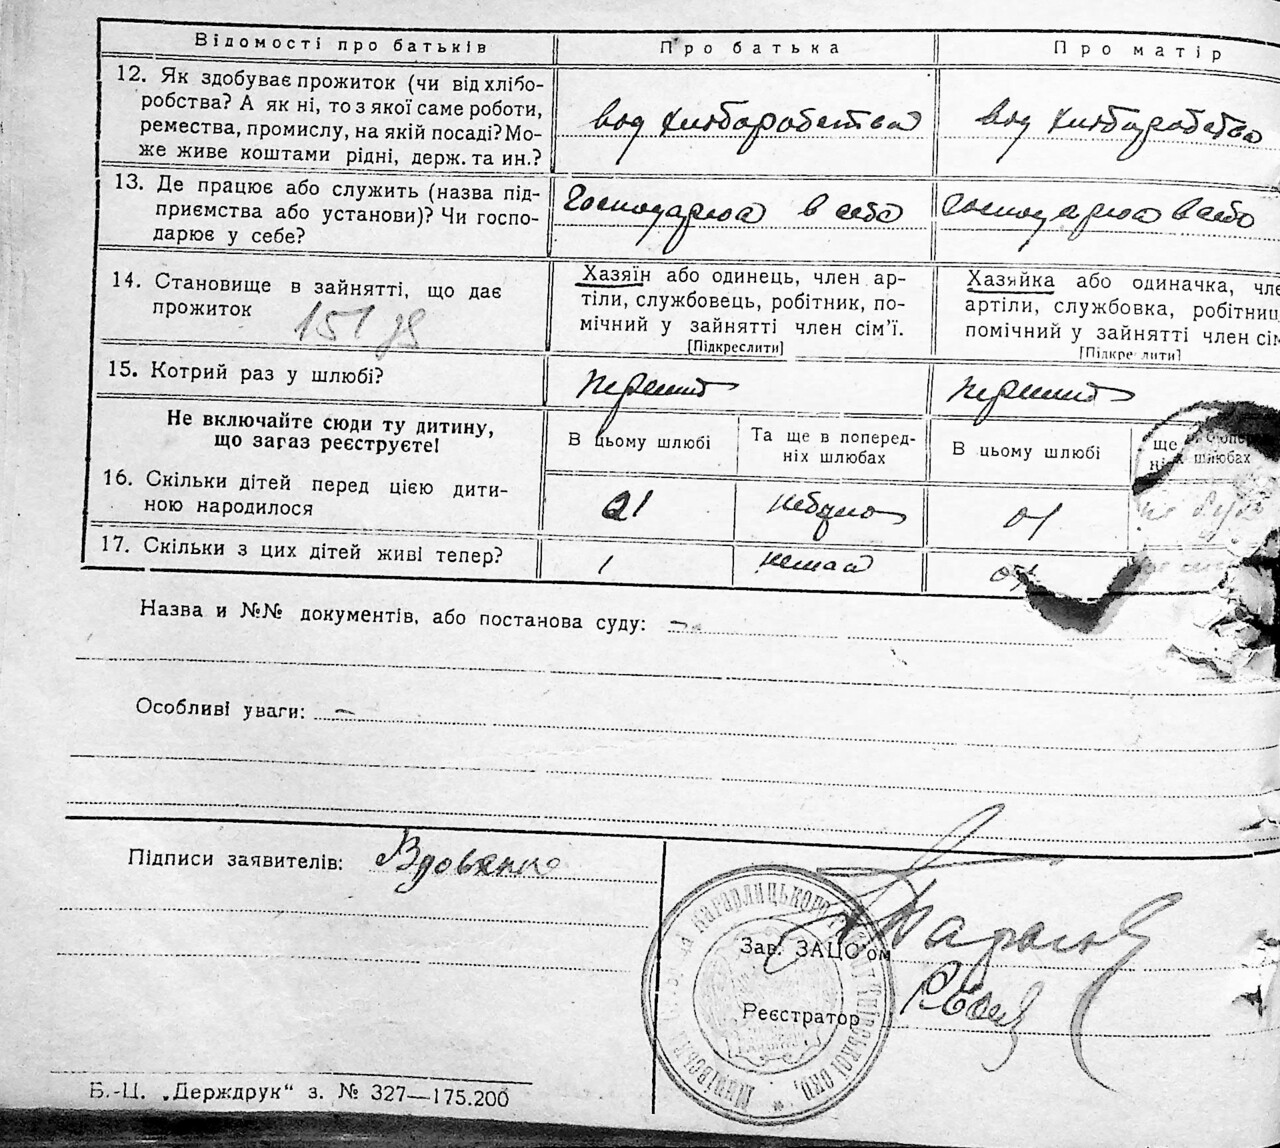 Відомості про батьків Про батька Про матір
12. Як здобуває прожиток (чи від хлібо-
робства? А як ні, то з якої саме роботи,
ремества, промислу, на якій посаді? Мо-
же живе коштами рідні, держ. та ин.?
вод хлиборобства вод хлиборобства
13. Де працює або служить (назва під-
приємства або установи)? Чи госпо-
дарює у себе?
Господарюа в себе Господарюа в себе
14. Становище в зайнятті, що дає
прожиток
Хазяїн або одинець, член ар-
тілі, службовець, робітник, по-
мічний у зайнятті член сім'ї.
[Підкреслити]
Хазяйка або одиначка, чле
артілі, службовка, робітниц
помічний у зайнятті член сім
[Підкреслити]
15. Котрий раз у шлюбі?
Не включайте сюди ту дитину,
що загаз реєструєте!
В цьому шлюбі Та ще в поперед-
ніх шлюбах
В цьому шлюбі ще
шлюбах
16. Скільки дітей перед цією дити-
ною народилося
небуло
17. Скільки з цих дітей живі тепер?
1 немаа
Назва и №№ документів, або постанова суду: —
Особливі уваги: —
Підписи заявителів: Вдовенко
Зав. ЗАЦС'ом
Реєстратор
Б.-Ц. „Держдрук“ з. № 327—175.200